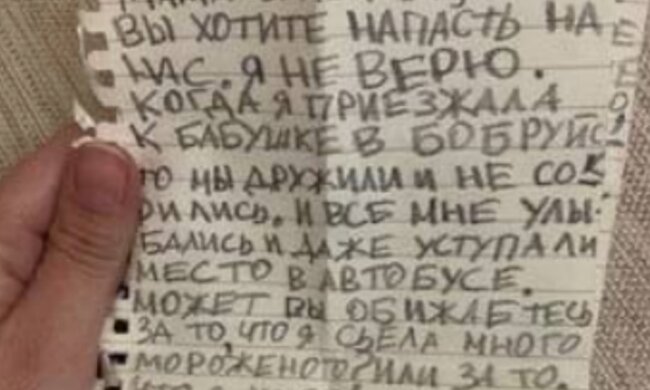 ВЫ ХОТИТЕ НАПАСТЬ НА
НАС. Я НЕ ВЕРЮ.
КОГДА Я ПРИЕЗЖАЛА
К БАБУШКЕ В БОБРУЙС
ТО МЫ ДРУЖИЛИ И НЕ СО
РИЛИСЬ. И ВСЕ МНЕ УЛЫ-
БАЛИСЬ И ДАЖЕ УСТУПАЛИ
МЕСТО В АВТОБУСЕ.
МОЖЕТ ВЫ ОБИЖАЕТЕСЬ
ЗА ТО, ЧТО Я СЪЕЛА МНОГО
МОРОЖЕНОГО? ИЛИ ЗА ТО